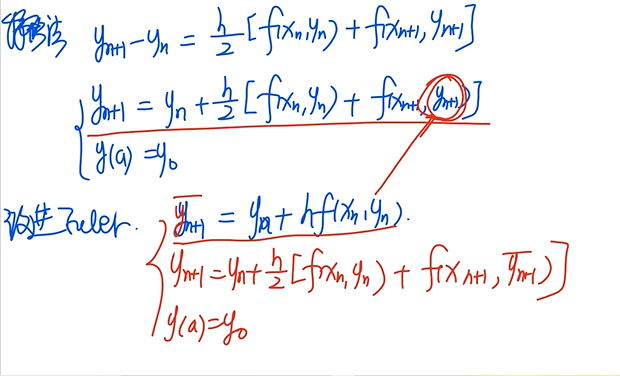 梯形法 y_{n+1} - y_n = \frac{h}{2} [f(x_n, y_n) + f(x_{n+1}, y_{n+1})]
y_{n+1} = y_n + \frac{h}{2} [f(x_n, y_n) + f(x_{n+1}, y_{n+1})]
y(a) = y_0
改进Euler. \overline{y_{n+1}} = y_n + h f(x_n, y_n).
y_{n+1} = y_n + \frac{h}{2} [f(x_n, y_n) + f(x_{n+1}, \overline{y_{n+1}})]
y(a) = y_0